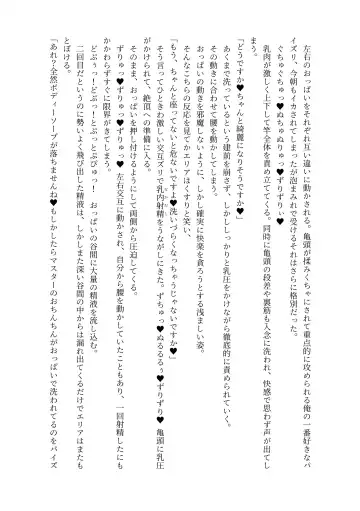 左右のおっぱいをそれぞれ互い違いに動かされる。亀頭が揉みくちゃにされて重点的に攻められる俺の一番好きなパ
イズリ、今朝もイカされてしまったが泡まみれで受けるそれはさらに格別だった。
ぐちゅぐちゅっ♥ぬゅぬゅりゅっ♥ずりずりぃ♥
乳肉が激しく上下して竿全体を責め立ててくる。同時に亀頭の段差や裏筋も入念に洗われ、快感で思わず声が出てし
まう。
「どうですか♥ちゃんと綺麗になりそうですか♥」
あくまで洗っているという建前を崩さず、しかししっかりと乳圧をかけながら徹底的に責められていく。
その動きに合わせて腰を動かしてしまう。
おっぱいの動きを邪魔しないように、しかし確実に快楽を貪ろうとする浅ましい姿。
そんなこちらの反応を見てかエリアはくすりと笑い、
「もう、ちゃんと座ってないと危ないですよ♥洗いづらくなっちゃうじゃないですか♥」
そう言ってひときわ激しい交互ズリで乳内射精をうながしにきた。ずちゅっ♥ぬるるるぅ♥ずりずり♥亀頭に乳圧
がかけられて、絶頂への準備に入る。
そのまま、おっぱいを押し付けるようにして両側から圧迫してくる。
ずりゅっ♥ずりゅっ♥ずりゅっ♥左右交互に動かされ、自分から腰を動かしていたこともあり、一回射精したにも
かかわらずすぐに限界がきてしまう。
どぷぅっ！どぷっ！とぷっとぷぴゅっ！　おっぱいの谷間に大量の精液を流し込む。
二回目だというのに勢いよく飛び出した精液は、しかしまた深い谷間の中からは漏れ出てくるだけでエリアはまたも
とぼける。
「あれ？全然ボディーソープが落ちませんね♥もしかしたらマスターのおちんちんがおっぱいで洗われてるのをパイズ